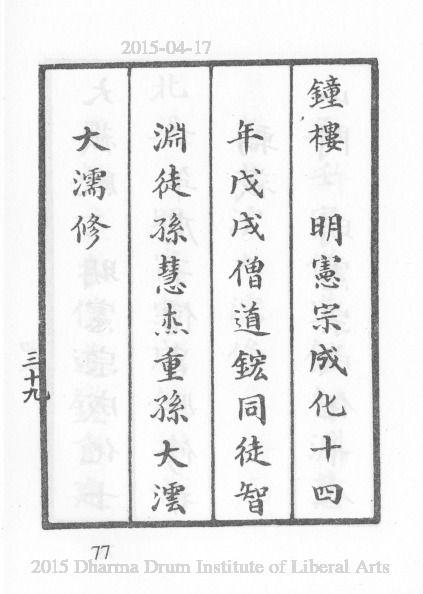 2015-04-17
鐘樓 明憲宗成化十四
年戊戌僧道鋐同徒智
淵徒孫慧杰重孫大澐
大濡修
三十九
77
2015 Dharma Drum Institute of Liberal Arts